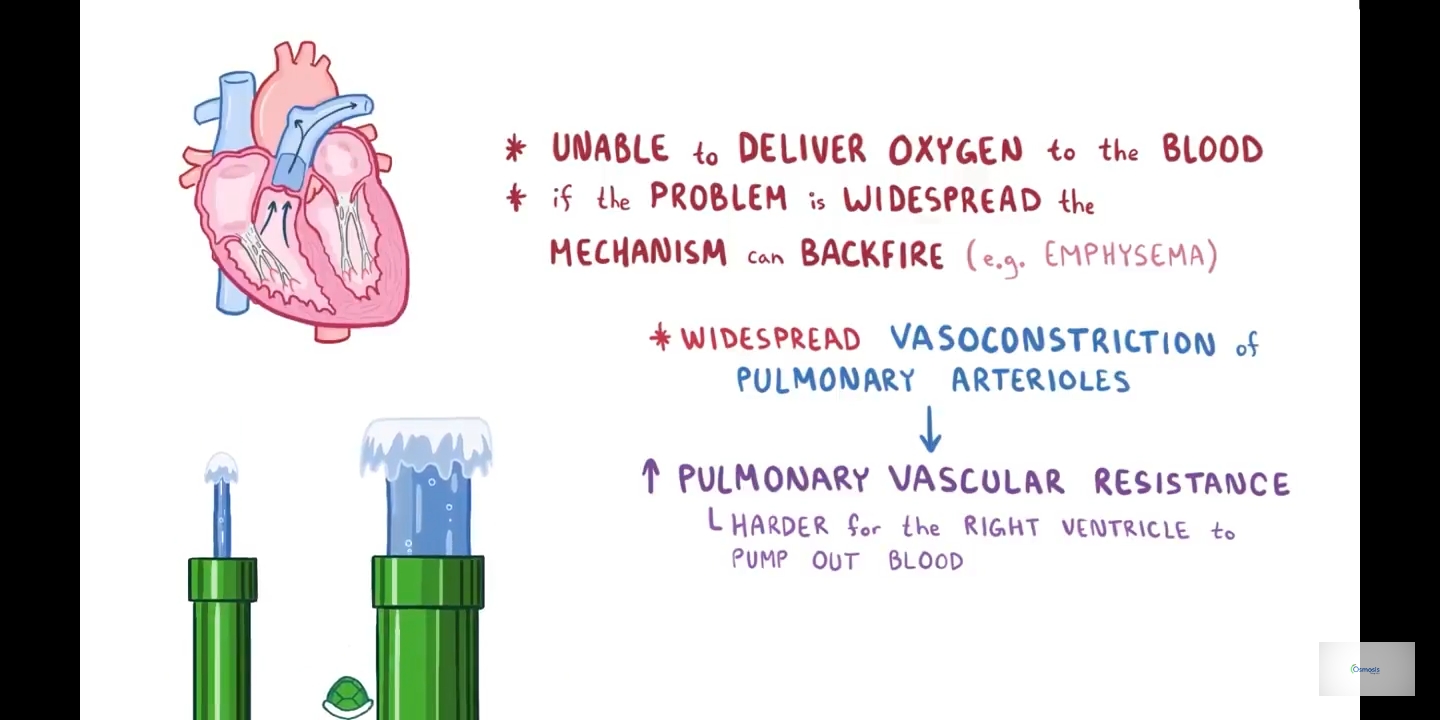 * UNABLE to DELIVER OXYGEN to the BLOOD
* if the PROBLEM is WIDESPREAD the
MECHANISM can BACKFIRE (e.g. EMPHYSEMA)
* WIDESPREAD VASOCONSTRICTION of
PULMONARY ARTERIOLES
↓
↑ PULMONARY VASCULAR RESISTANCE
└ HARDER for the RIGHT VENTRICLE to
PUMP OUT BLOOD
Osmosis